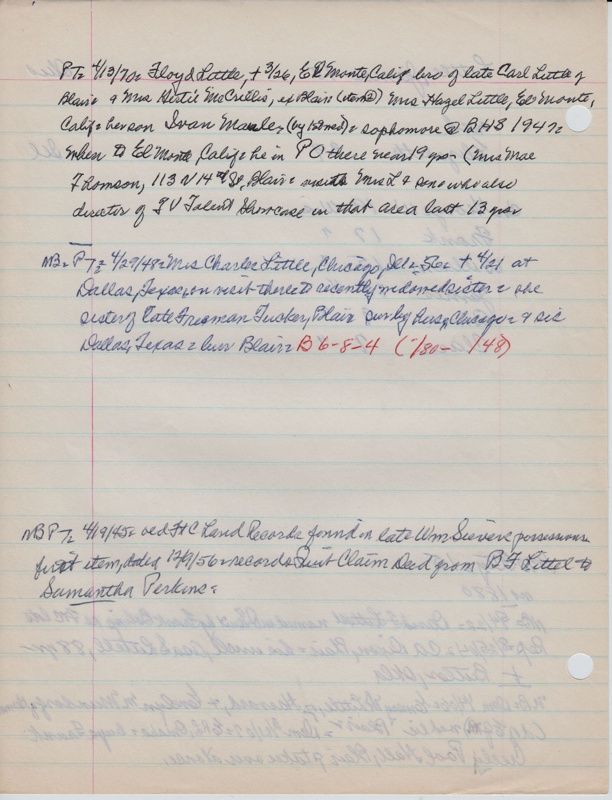 PT= 4/13/70= Floyd Little, + 3/26, El Monte, Calif bro of late Carl Little of
Blair & Mrs Gertie McCrillis, ex Blair Mrs Hazel Little, El Monte,
Calif= her son Ivan = sophomore @ BHS 1947=
when to El Monte, Calif= he in PO there near 19 yrs (Mrs Mae
Thomson, 113 N 14th St, Blair= visits Mrs L & son who also
director of TV Talent Showcase in that area last 13 yrs
MB= PT= 4/29/48= Mrs Charles Little, Chicago, Ill= + 4/21 at
Dallas, Texas, on visit there to recently widowed sister= she
sister of late Freeman Tucker, Blair sur by hus, Chicago= & sis
Dallas, Texas= bur Blair= B 6-8-4 (-/80- /48)
MB PT= 4/19/45= Land Records found in late Wm Sievers possession
first item, dated 1856= records Quit Claim Deed from B F Littel to
Samantha Perkins=